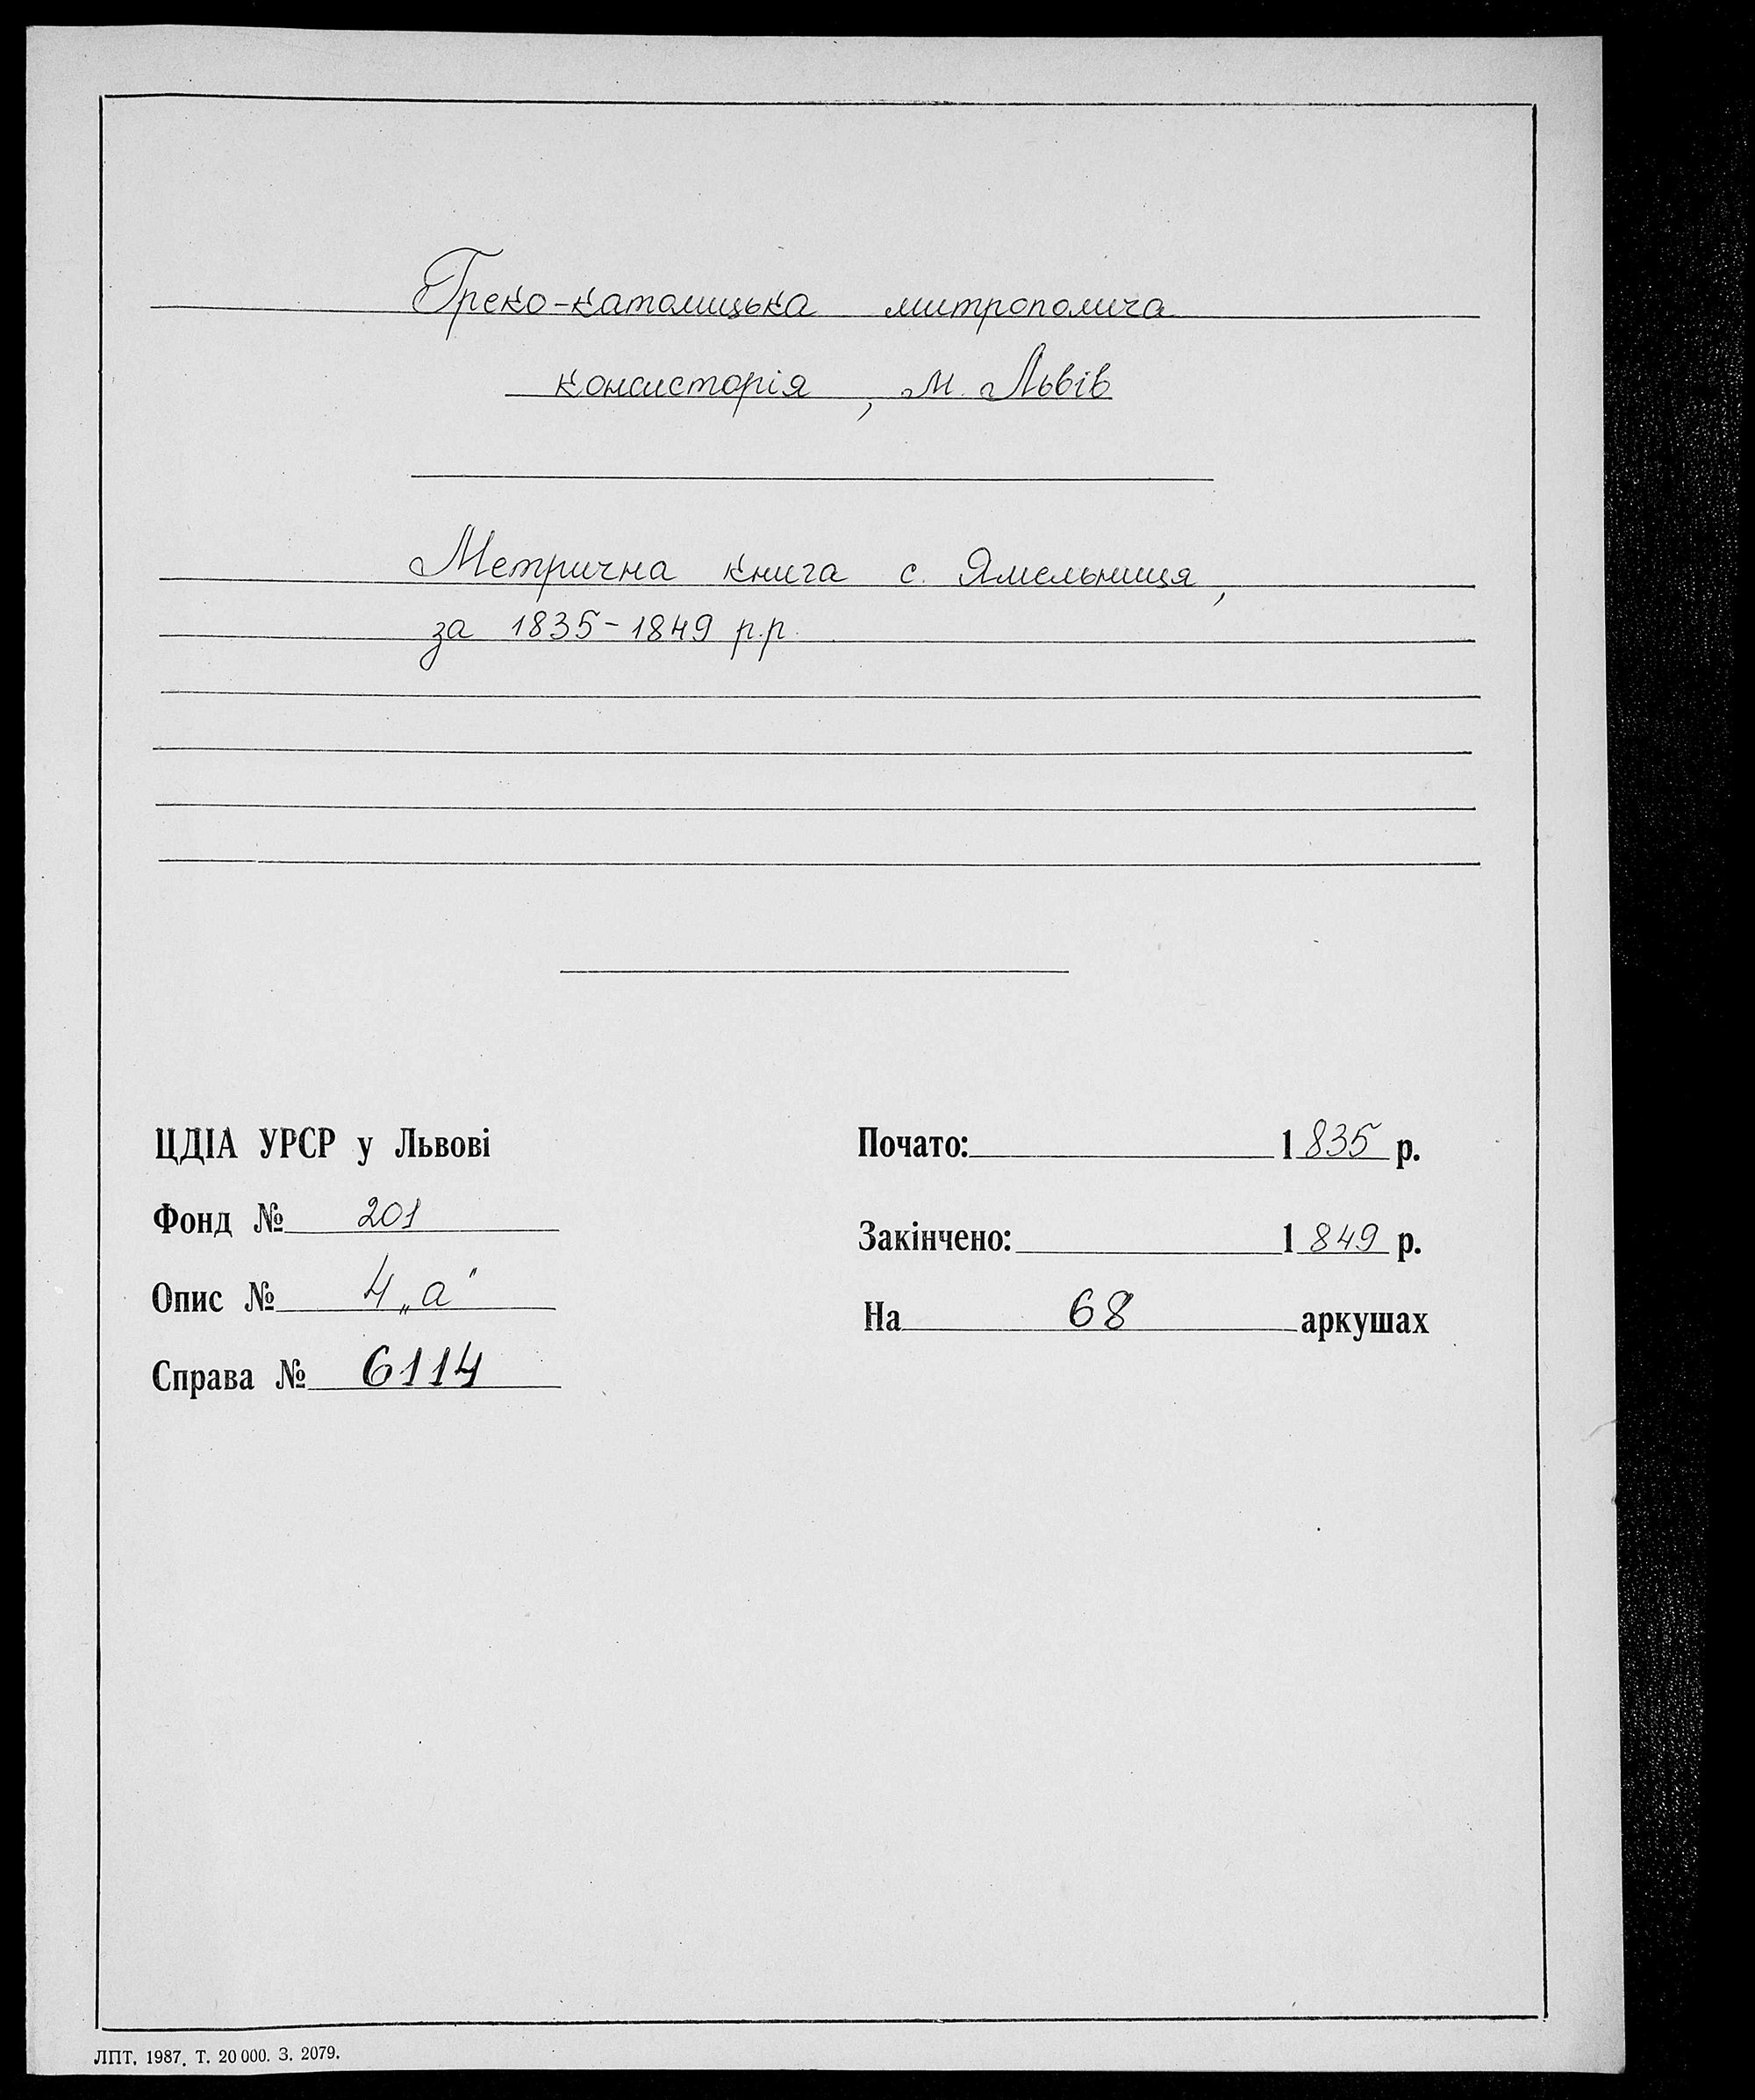 Греко-католицька митрополича
консисторія, м. Львів
Метрична книга с. Ямельниця,
за 1835-1849 р.р.
ЦДІА УРСР у Львові
Фонд № 201
Опис № 4 „а"
Справа № 6114
Почато: 1835 р.
Закінчено: 1849 р.
На 68 аркушах
ЛПТ. 1987. Т. 20 000. З. 2079.